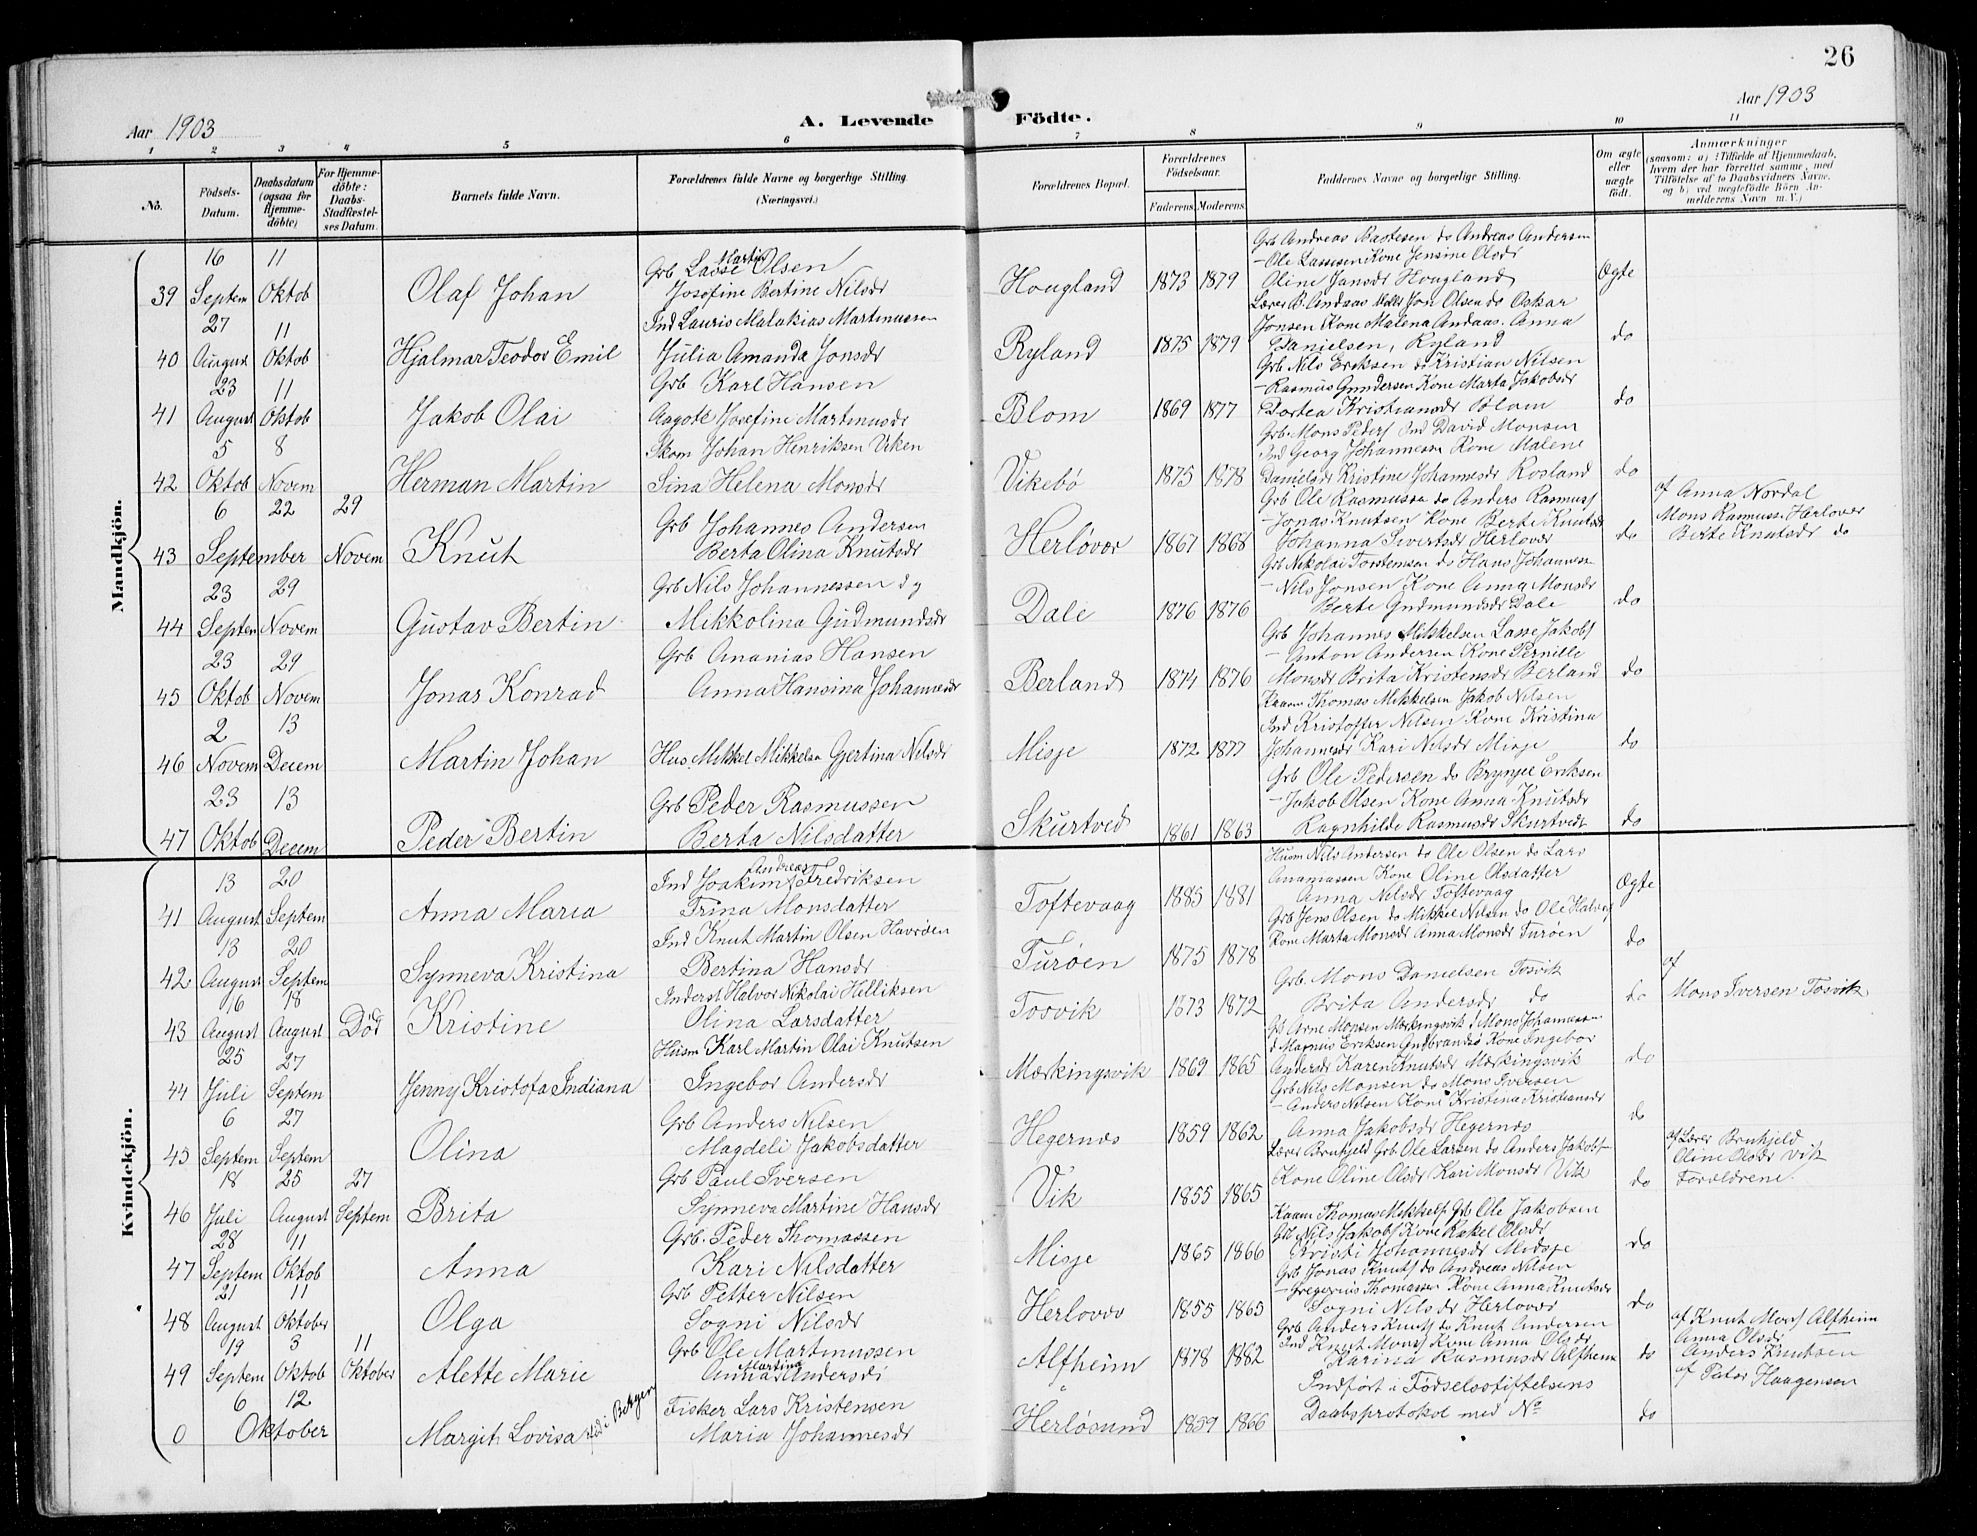 26
Aar 1903
A. Levende Födte.
Aar 1903
1 2 3 4 5 6 7 8 9 10 11
No.
Födsels-Datum.
Daabsdatum (ogsaa for Hjemme-döbte)
For Hjemme-döbte: Daabs-Stadfæstel-ses Datum.
Barnets fulde Navn.
Forældrenes fulde Navne og borgerlige Stilling. (Næringsvei.)
Forældrenes Bopæl.
Forældrenes Födselsaar.
Faderens. Moderens.
Faddernes Navne og borgerlige Stilling.
Om ægte eller uægte født.
Anmærkninger (saasom: a) i Tilfælde af Hjemmedaab, hvem der har forrettet samme, med Tilföielse af to Daabsvidners Navne, og b) ved uægtefödte Börn An-melderens Navn m. V.)
Mandkjön.
39 16 Septem 11 Oktob Olaf Johan Grb Lasse Martin Olsen Josefine Bertine Nilsdr Hougland 1873 1879 Grb Andreas Bastesen do Andreas Andersen - Ole Lassesen Kone Jensine Olsdr Oline Jansdr Hougland Ægte
40 27 August 11 Oktob Hjalmar Teodor Emil Ind Lauris Malakias Martinussen Julia Amanda Jonsdr Ryland 1875 1879 Lærer B. Andaas Jon Olsen do Oskar Jonsen Kone Malena Andaas. Anna Danielsen, Ryland do
41 23 August 11 Oktob Jakob Olai Grb Karl Hansen Aagote Josefine Martinusdr Blom 1869 1877 Grb Nils Eriksen do Kristian Nilsen - Rasmus Gundersen Kone Marta Jakobsdr Dortea Kristiansdr Blom do
42 5 Oktob 8 Novem Herman Martin Skom Johan Henriksen Viken Sina Helena Monsdr Vikebø 1875 1878 Grb. Mons Peders Ind David Monsen Ind Georg Johannessen Kone Malene Danielsdr Kristine Johannesdr Rosland do
43 6 September 22 29 Novem Knut Grb Johannes Andersen Berta Olina Knutsdr Herløvær 1867 1868 Grb Ole Rasmussen do Anders Rasmus - Jonas Knutsen Kone Berte Knutsdr Johanna Sivertsdr Herlovær do af Anna Nordal Mons Rasmuss Herlover Berte Knutsdr do
44 23 Septem 29 Novem Gustav Bertin Grb Nils Johannessen d y Mikkolina Gudmundsdr Dale 1876 1876 Grb Nikolai Torstensen do Hans Johannessen - Nils Jonsen Kone Anna Monsdr Berte Gudmundsdr Dale do
45 23 Oktob 29 Novem Jonas Konrad Grb Ananias Hansen Anna Hansina Johannesdr Berland 1874 1876 Grb Johannes Mikkelsen Lasse Jakobs - Anton Andersen Kone Pernille Monsdr Brita Kristensdr Berland do
46 2 Novem 13 Decem Martin Johan Hus. Mikkel Mikkelsen Gjertina Nilsdr Misje 1872 1877 Kaarm Thomas Mikkelsen Jakob Nilsen Ind Kristoffer Nilsen Kone Kristina Johannesdr Kari Nilsdr Misje do
47 23 Oktob 13 Decem Peder Bertin Grb Peder Rasmussen Berta Nilsdatter Skurtved 1861 1863 Grb Ole Pedersen do Brynjel Eriksen - Jakob Olsen Kone Anna Knutsdr Ragnhilde Rasmusdr Skurtvedt do
Kvindekjön.
41 13 August 20 Septem Anna Maria Ind Joakim Andreas Fredriksen Trina Monsdatter Toftevaag 1885 1881 Husm Nils Andersen do Ole Olsen do Lars Ananiassen Kone Oline Olsdatter Anna Nilsdr Toftevaag Ægte
42 13 August 20 Septem Synneva Kristina Ind Knut Martin Olsen Havroen Bertina Hansdr Turøen 1875 1878 Grb Jens Olsen do Mikkel Nilsen do Ole Halvors Kone Marta Monsdr Anna Monsdr Turøen do
43 16 August 18 August Død Kristine Inderst Halvor Nikolai Hilliksen Olina Larsdatter Tosvik 1873 1872 Grb. Mons Danielsen Tosvik Brita Andersdr do do af Mons Iversen Tosvik
44 25 Juli 27 Septem Jenny Kristofa Indiana Husm Karl Martin Olai Knutsen Ingebor Andersdr Mærkingsvik 1869 1865 Gb Arne Monsen Mærkingsvik d Mons Johannessen d Magnus Eriksen Gudbrandsø Kone Ingebor Andersdr Karen Knutsdr Mærkingsvik do
45 6 Septem 27 Septem Olina Grb Anders Nilsen Magdeli Jakobsdatter Hegernæs 1859 1862 Grb Nils Monsen do Mons Iversen - Anders Nilsen Kone Kristina Kristiansdr Anna Jakobsdr Hegernæs do
46 18 Juli 25 August 27 Septem Brita Grb Paul Iversen Synneva Martine Hansdr Vik 1855 1865 Lærer Bruhjeld Grb Ole Larsen do Anders Jakobs Kone Oline Olsdr Kari Monsdr Vik do af Lærer Bruhjeld Oline Olsdr Vik Forældrene
47 28 Septem 11 Oktob Anna Grb. Peder Thomassen Kari Nilsdatter Misje 1865 1866 Kaarm Thomas Mikkels Grb Ole Jakobsen Grb Nils Jakobs Kone Rakel Olsdr Kristi Johannesdr Misje do
48 21 August 11 Oktober Olga Grb Petter Nilsen Sogni Nilsdr Herlovær 1855 1865 Grb Jonas Knuts do Andreas Nilsen - Gregorius Thomassen Kone Anna Knutsdr Sogni Nilsdr Herlover do
49 19 Septem 3 Oktob 11 Oktober Alette Marie Grb Ole Martinussen Anna Martina Andersdr Alfheim 1878 1882 Grb Anders Knuts do Knut Andersen Ind Knut Mons Kone Anna Olsdr Karina Rasmusdr Alfheim do af Knut Mons Alfheim Anna Olsdr Anders Knutsen
0 6 12 Oktober Margit Lovisa fød i Bergen Fisker Lars Kristensen Maria Johannesdr Herløsund 1859 1866 Indført i Fødselsstiftelsens Daabsprotokol med No do af Pator Haagensen